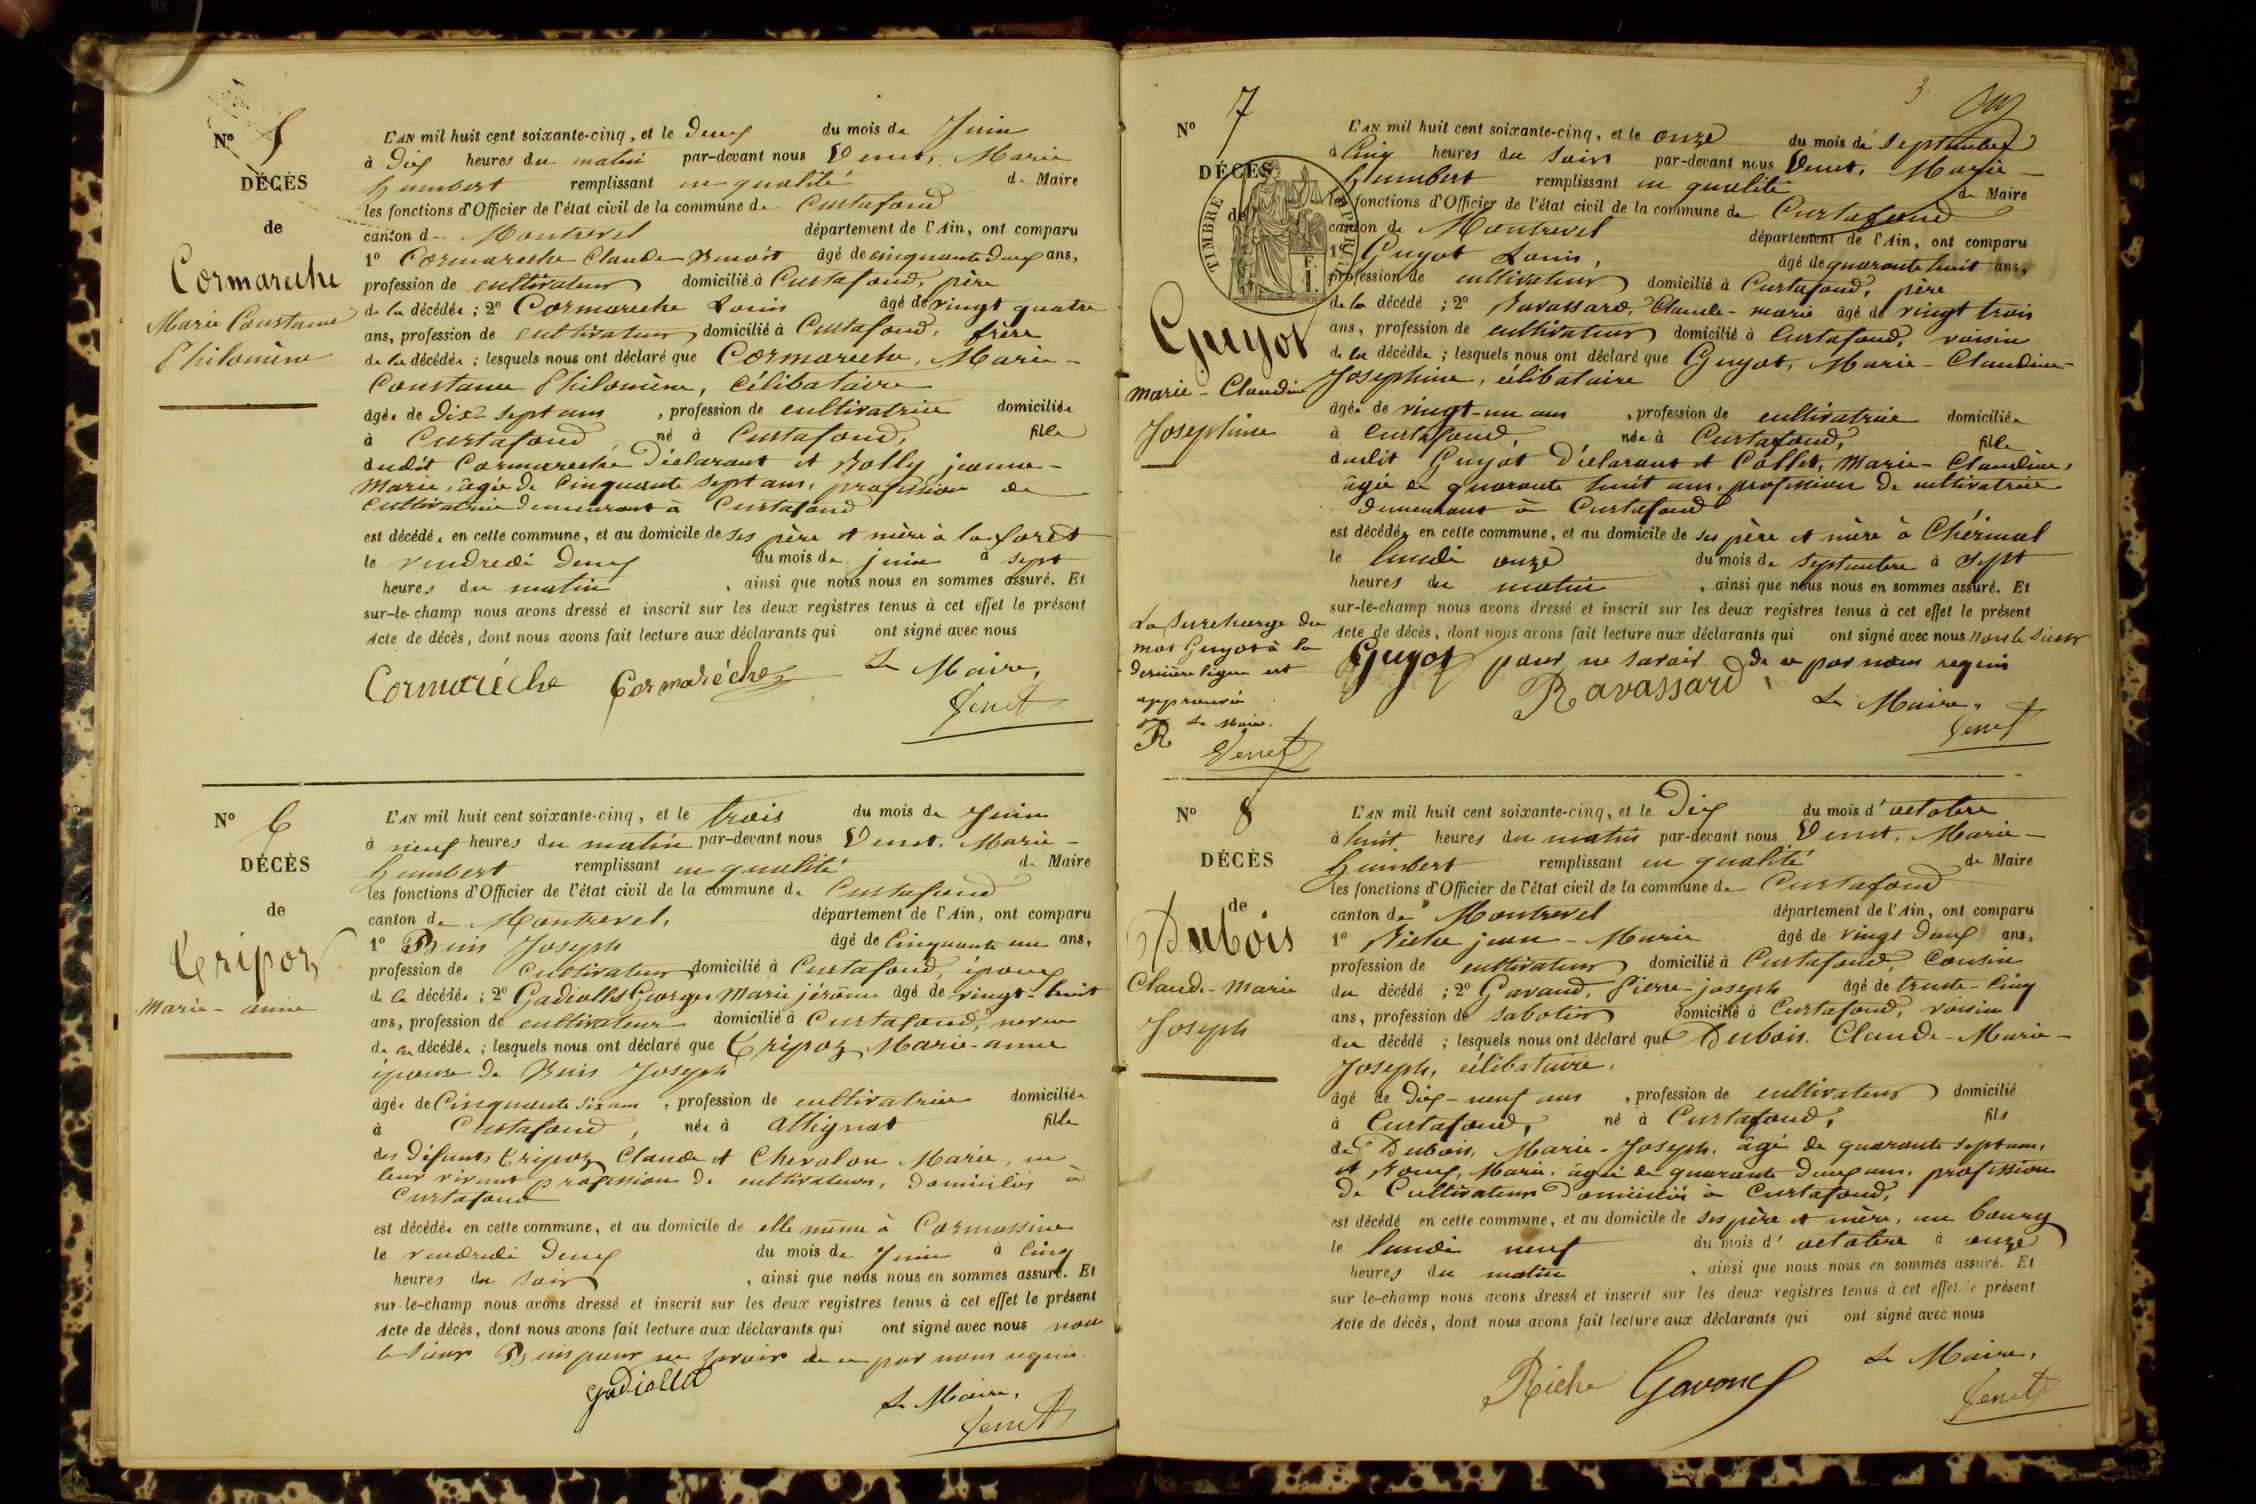 N° 5
DÉCÈS
de
Cormareche
Marie Constance
Philomène
L'AN mil huit cent soixante-cinq, et le deux du mois de Juin
à dix heures du matin par-devant nous Venet, Marie
Humbert remplissant en qualité de Maire
les fonctions d'Officier de l'état civil de la commune de Curtafond
canton de Montrevel département de l'Ain, ont comparu
1° Cormareche Claude Benoit âgé de cinquante deux ans,
profession de cultivateur domicilié à Curtafond, père
de la décédée ; 2° Cormareche Louis âgé de vingt quatre
ans, profession de cultivateur, domicilié à Curtafond, frère
de la décédée ; lesquels nous ont déclaré que Cormareche, Marie-
Constance Philomène, célibataire
âgée de dix-sept ans, profession de cultivatrice domiciliée
à Curtafond, né à Curtafond, fille
dudit Cormareche déclarant et Bolly jeanne-
Marie, âgée de cinquante sept ans, profession de
cultivatrice demeurant à Curtafond
est décédée en cette commune, et au domicile de ses père et mère à la forêt
le vendredi deux du mois de juin à sept
heures du matin, ainsi que nous nous en sommes assuré. Et
sur-le-champ nous avons dressé et inscrit sur les deux registres tenus à cet effet le présent
Acte de décès, dont nous avons fait lecture aux déclarants qui ont signé avec nous
Cormaréche Cormaréche Le Maire,
Venet
N° 6
DÉCÈS
de
Tripoz
Marie-anne
L'AN mil huit cent soixante-cinq, et le trois du mois de Juin
à neuf heures du matin par-devant nous Venet, Marie-
Humbert remplissant en qualité de Maire
les fonctions d'Officier de l'état civil de la commune de Curtafond
canton de Montrevel, département de l'Ain, ont comparu
1° Buis Joseph âgé de cinquante un ans,
profession de cultivateur domicilié à Curtafond, époux
de la décédée ; 2° Gadiollet Georges Marie jérôme âgé de vingt-huit
ans, profession de cultivateur domicilié à Curtafond, neveu
de la décédée ; lesquels nous ont déclaré que Tripoz Marie-anne
épouse de Buis Joseph
âgée de cinquante six ans, profession de cultivatrice domiciliée
à Curtafond, née à attignat fille
des défunts Tripoz Claude et Chevalon Marie, en
leur vivant profession de cultivateurs, domiciliés à
Curtafond
est décédée en cette commune, et au domicile de elle même à Cormassine
le vendredi deux du mois de Juin à cinq
heures du soir, ainsi que nous nous en sommes assuré. Et
sur-le-champ nous avons dressé et inscrit sur les deux registres tenus à cet effet le présent
Acte de décès, dont nous avons fait lecture aux déclarants qui ont signé avec nous non
le sieur Buis pour ne savoir de ce par nous requis.
Gadiollet
Le Maire,
Venet
3
N° 7
DÉCÈS
de
TIMBRE IMPÉRIAL
Guyot
Marie-Claudine
Josephine
L'AN mil huit cent soixante-cinq, et le onze du mois de septembre
à cinq heures du soir par-devant nous Venet, Marie-
Humbert remplissant en qualité de Maire
les fonctions d'Officier de l'état civil de la commune de Curtafond
canton de Montrevel département de l'Ain, ont comparu
1° Guyot Louis, âgé de quarante huit ans,
profession de cultivateur domicilié à Curtafond, père
de la décédé ; 2° Ravassard, Claude-marie âgé de vingt trois
ans, profession de cultivateur domicilié à Curtafond, voisin
de la décédée ; lesquels nous ont déclaré que Guyot, Marie-Claudine-
Josephine, célibataire
âgée de vingt-un ans, profession de cultivatrice domiciliée
à Curtafond, née à Curtafond, fille
dudit Guyot déclarant et Collet, Marie-Claudine,
âgée de quarante huit ans, profession de cultivatrice
demeurant à Curtafond
est décédée en cette commune, et au domicile de ses père et mère à Chérinal
le lundi onze du mois de septembre à sept
heures du matin, ainsi que nous nous en sommes assuré. Et
sur-le-champ nous avons dressé et inscrit sur les deux registres tenus à cet effet le présent
Acte de décès, dont nous avons fait lecture aux déclarants qui ont signé avec nous non le sieur
Guyot pour ne savoir de ce par nous requis
Ravassard
Le Maire,
Venet
La surcharge du
mot Guyot à la
dernière ligne est
approuvée
Le Maire.
R
Venet
N° 8
DÉCÈS
de
Dubois
Claude-Marie
Joseph
L'AN mil huit cent soixante-cinq, et le dix du mois d'octobre
à huit heures du matin par-devant nous Venet, Marie-
Humbert remplissant en qualité de Maire
les fonctions d'Officier de l'état civil de la commune de Curtafond
canton de Montrevel département de l'Ain, ont comparu
1° Riche jean-Marie âgé de vingt deux ans,
profession de cultivateur domicilié à Curtafond, cousin
du décédé ; 2° Gavand, Pierre-joseph âgé de trente-cinq
ans, profession de sabotier domicilié à Curtafond, voisin
du décédé ; lesquels nous ont déclaré que Dubois, Claude-Marie-
Joseph, célibataire,
âgé de dix-neuf ans, profession de cultivateur domicilié
à Curtafond, né à Curtafond, fils
de Dubois, Marie-Joseph, âgé de quarante sept ans,
et Marie, âgée de quarante deux ans, profession
de cultivateurs domiciliés à Curtafond,
est décédé en cette commune, et au domicile de ses père et mère, au bourg
le lundi neuf du mois d'octobre à onze
heures du matin, ainsi que nous nous en sommes assuré. Et
sur-le-champ nous avons dressé et inscrit sur les deux registres tenus à cet effet le présent
Acte de décès, dont nous avons fait lecture aux déclarants qui ont signé avec nous
Riche Le Maire,
Venet